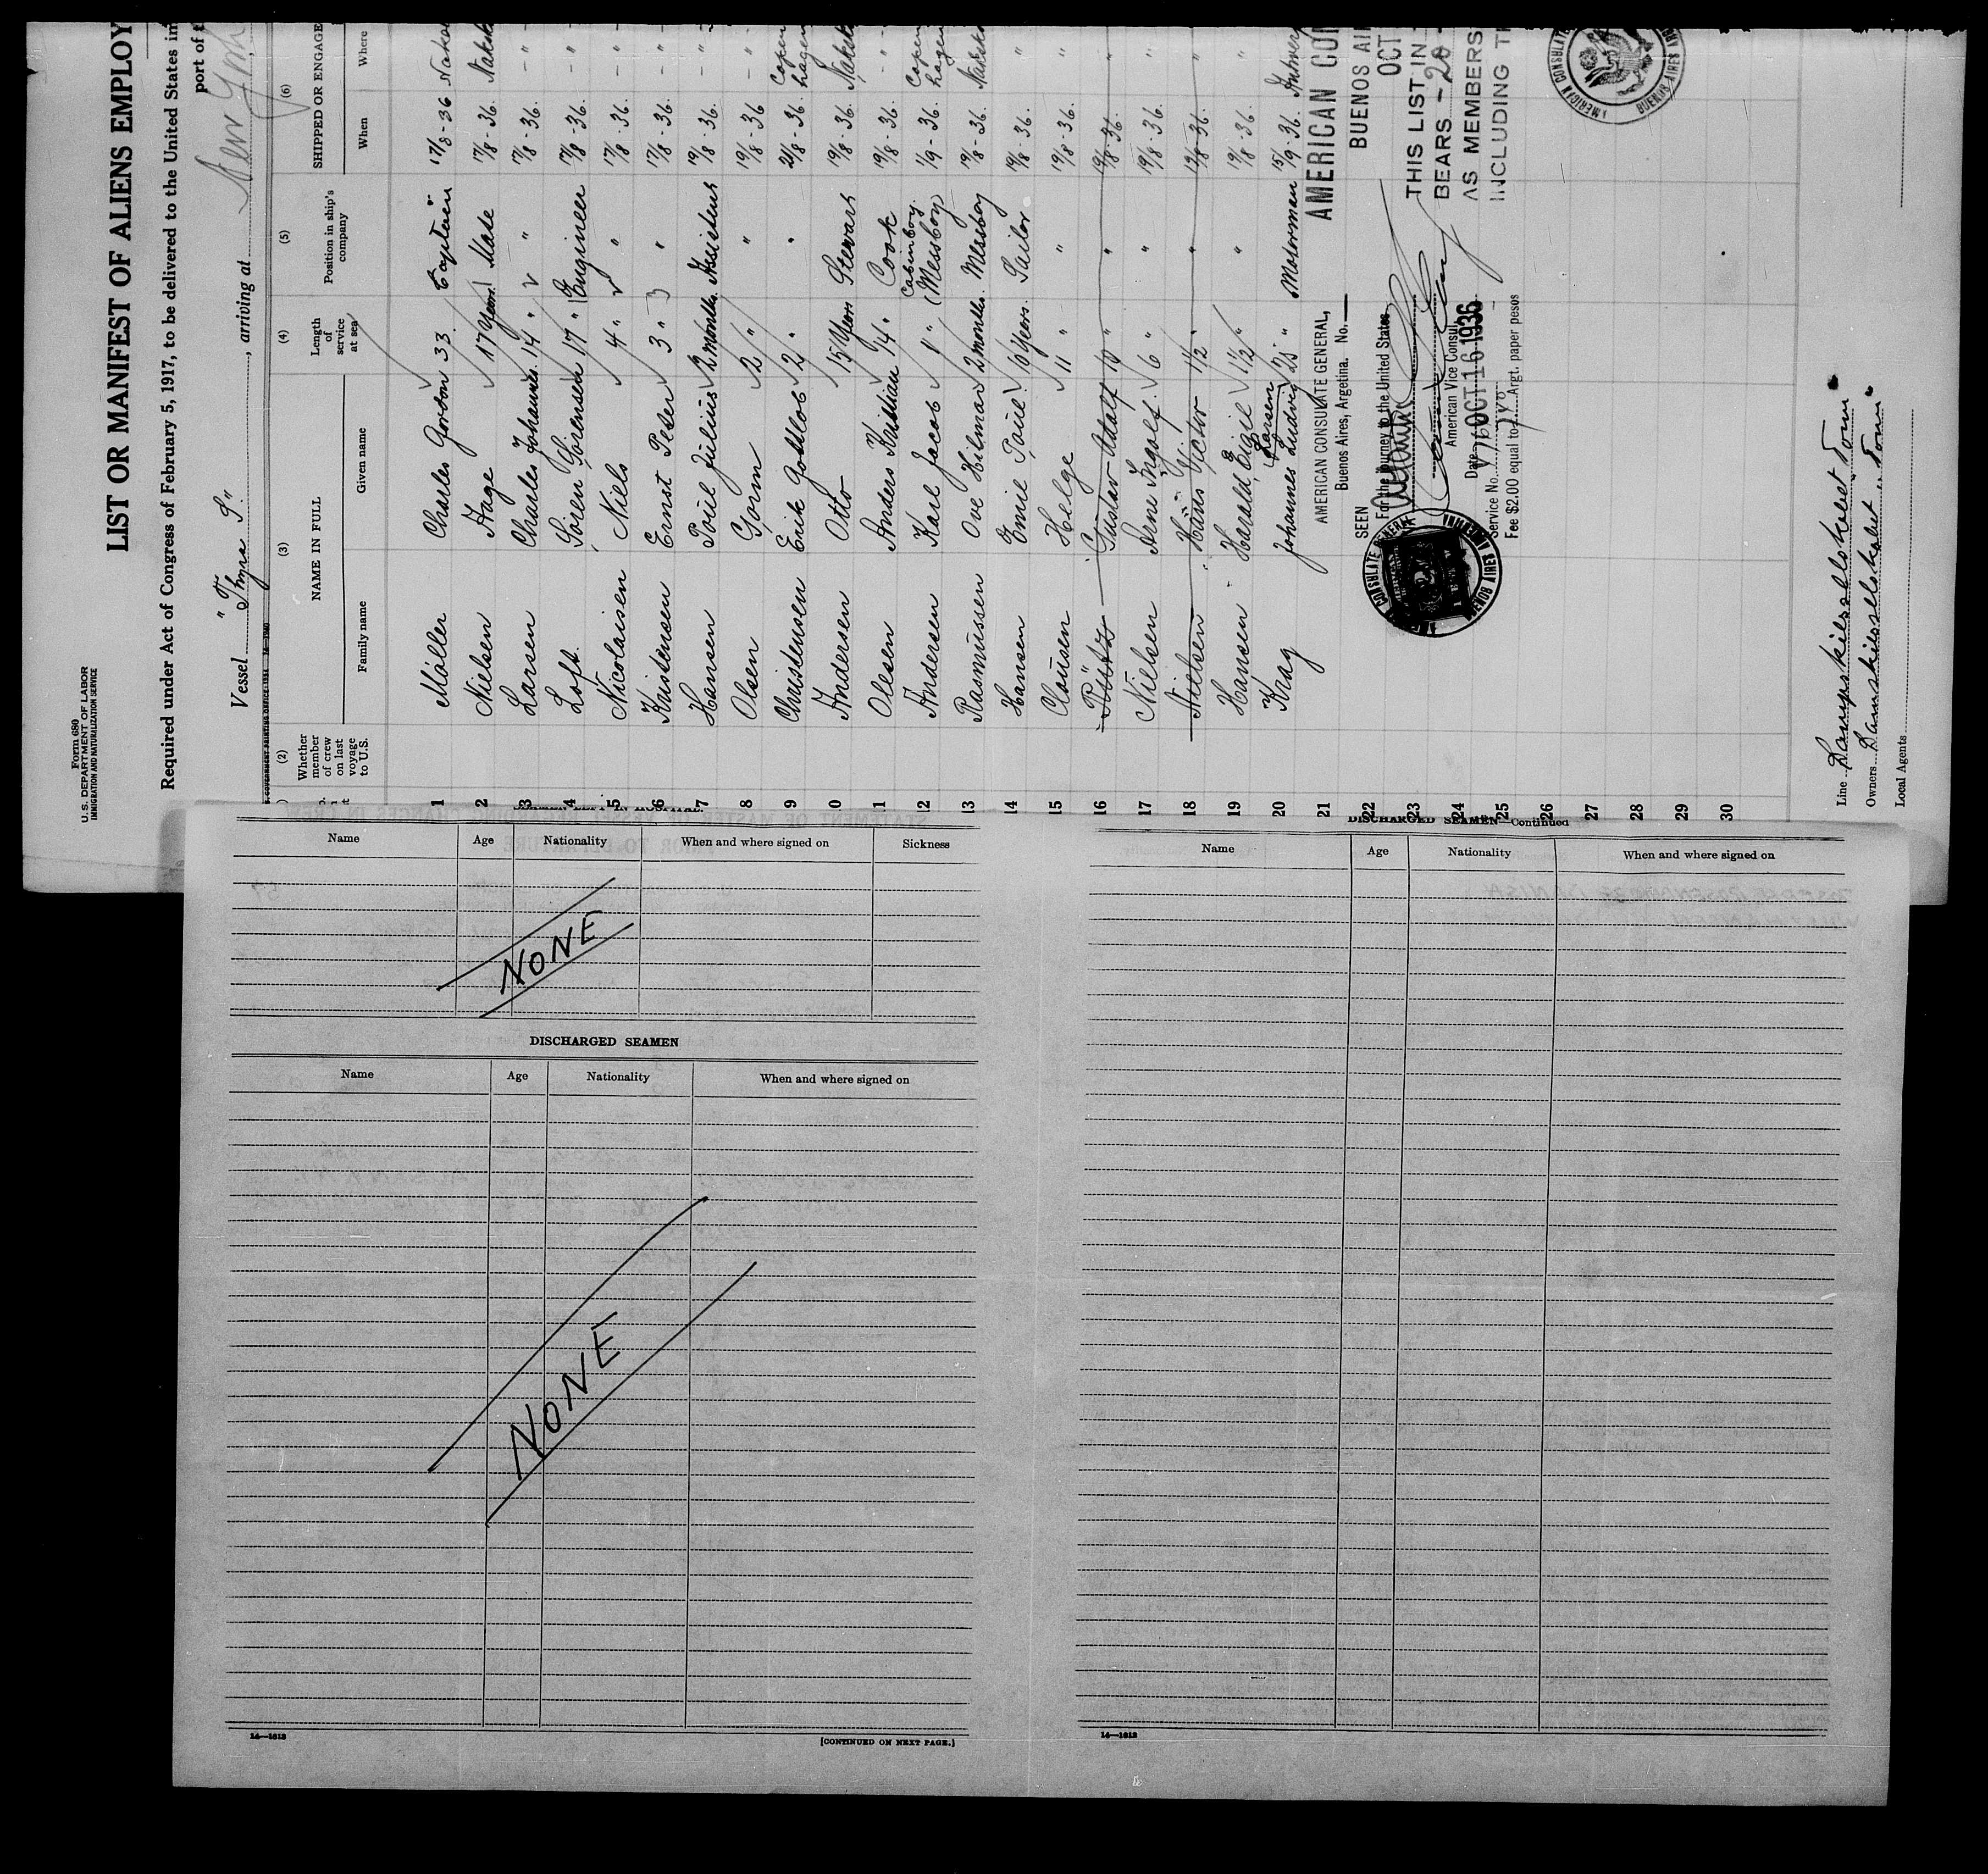 Form 680
U.S. DEPARTMENT OF LABOR
IMMIGRATION AND NATURALIZATION SERVICE
LIST OR MANIFEST OF ALIENS EMPLOY
Required under Act of Congress of February 5, 1917, to be delivered to the United States im
port of
Vessel "Thyra S", arriving at New York
(2) (3) (4) (5) (6)
Whether member of crew on last voyage to U.S. NAME IN FULL Length of service at sea Position in ship's company SHIPPED OR ENGAGE
Family name Given name When Where
1 Möller Charles Gordon 33 Captain 17/8-36 Nakskov
2 Nielsen Aage 17 Years Mate 17/8-36 Naksk
3 Larsen Charles Johannes 14 " " 17/8-36 - " -
4 Loft Sören Sörensen 17 " Engineer 17/8-36 - " -
5 Nicolaisen Niels 4 " " 17/8-36 - " -
6 Kristensen Ernst Peter 3 " " 17/8-36 - " -
7 Hansen Poul Julius 2 months Assistent 19/8-36 - " -
8 Olsen Gorm 2 " " 19/8-36 - " -
9 Christensen Erik Gottlob 2 " " 21/8-36 Copenhagen
10 Andersen Otto 15 Years Steward 19/8-36 Naksk
11 Olesen Anders Kristian 14 " Cook 19/8-36 - " -
12 Andersen Karl Jacob 1 " Cabinboy (Messboy) 1/9-36 Copenhagen
13 Rasmussen Ove Hilmar 2 months Messboy 19/8-36 Naksk
14 Hansen Emil Poul 10 Years Sailor 19/8-36 "
15 Clousen Helge 11 " " 19/8-36 "
16 Pütz Gustav Adolf 10 " " 19/8-36 "
17 Nielsen Arne Ingolf 6 " " 19/8-36 "
18 Nielsen Hans Victor 1 1/2 " " 19/8-36 "
19 Hansen Harald Eigil 1 1/2 " " 19/8-36 "
20 Krag Johannes Ludvig Larsen " Motorman 15/9-36 Antwerp
21
22
23
24
25
26
27
28
29
30
AMERICAN CONSULATE GENERAL,
Buenos Aires, Argetina. No.
SEEN
For the journey to the United States
American Vice Consul
Date OCT 16 1936
Service No.
Fee $2.00 equal to Argt. paper pesos
AMERICAN CON
BUENOS AI
OCT
THIS LIST IN
BEARS - 20 -
AS MEMBERS
INCLUDING T
AMERICAN CONSULATE
BUENOS AIRES
Line Dampskibsselskabet "Torm"
Owners Dampskibsselskabet "Torm"
Local Agents
Name Age Nationality When and where signed on Sickness
NONE
DISCHARGED SEAMEN
Name Age Nationality When and where signed on
NONE
14—1613
[CONTINUED ON NEXT PAGE.]
DISCHARGED SEAMEN—Continued
Name Age Nationality When and where signed on
14—1613